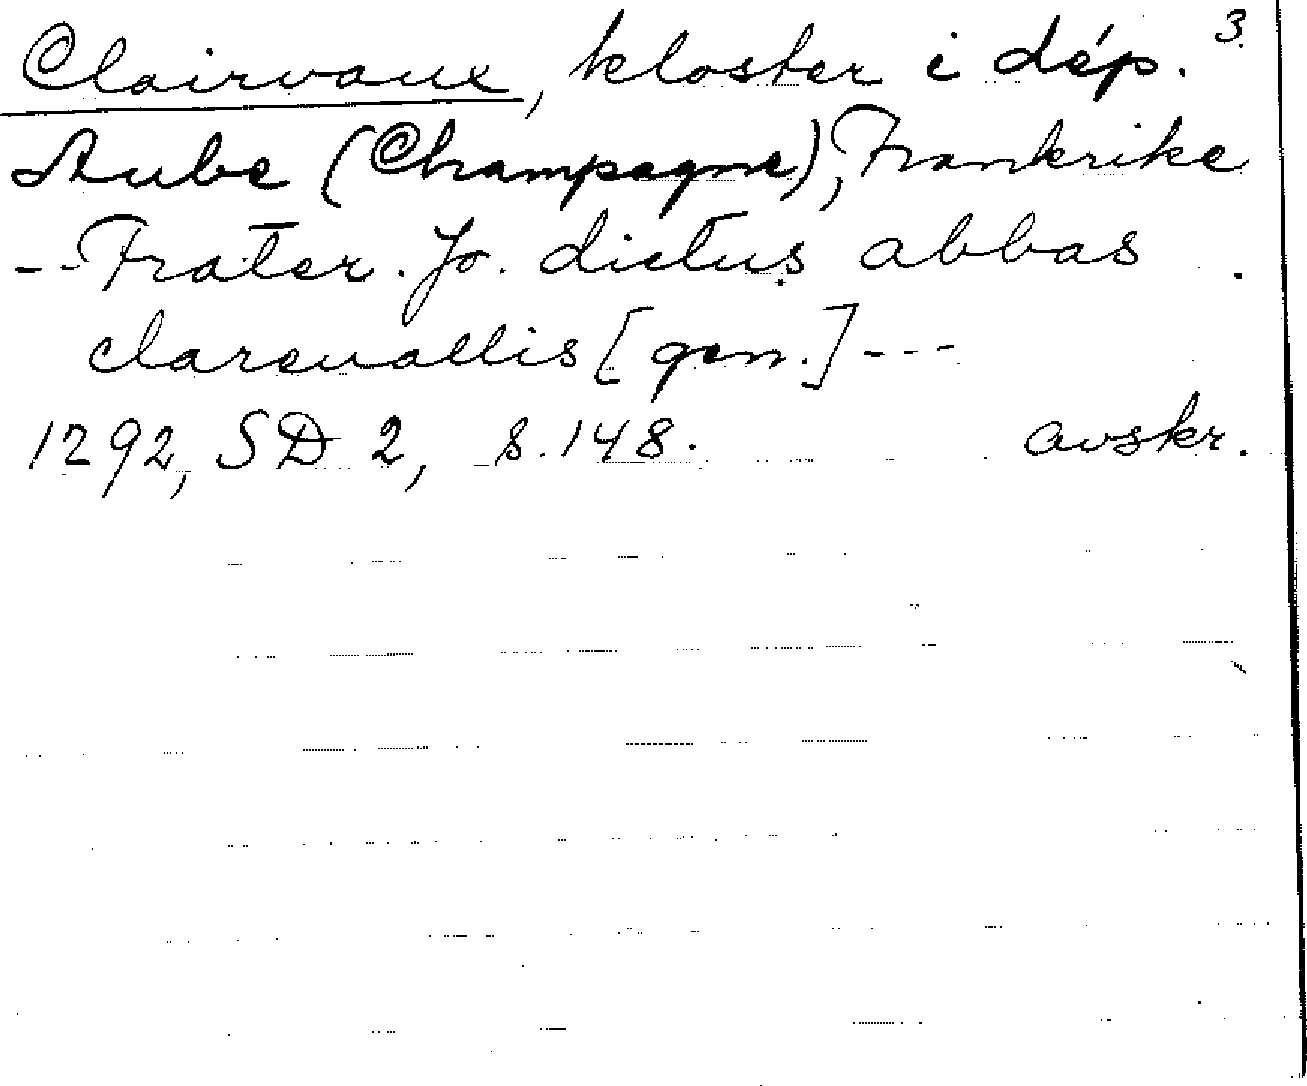 3.
Clairvaux, kloster i dép.
Aube (Champagne), Frankrike
- - Frater. Jo. dictus abbas
clareuallis [gen.] - - -
1292, SD 2, s. 148. avskr.